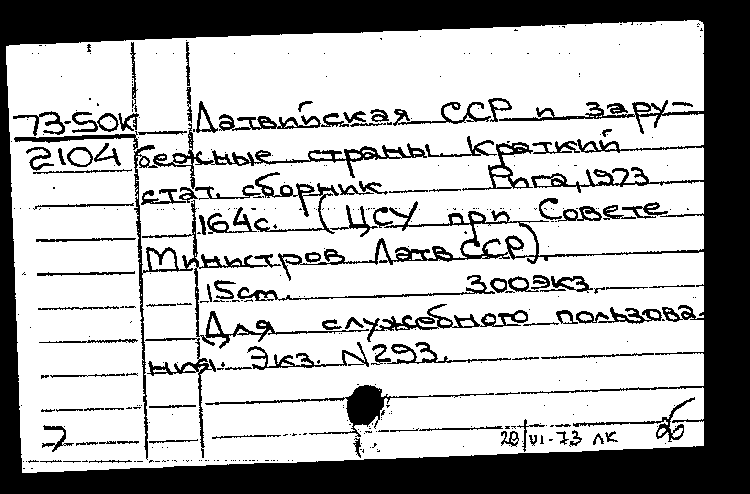 73-50к Латвийская ССР и зару-
2104 бежные страны Краткий
стат. сборник Рига, 1973
164с. (ЦСУ при Совете
Министров Латв ССР).
15cm. 300экз.
Для служебного пользова-
ния. Экз. N293.
7 28/VI-73 лк